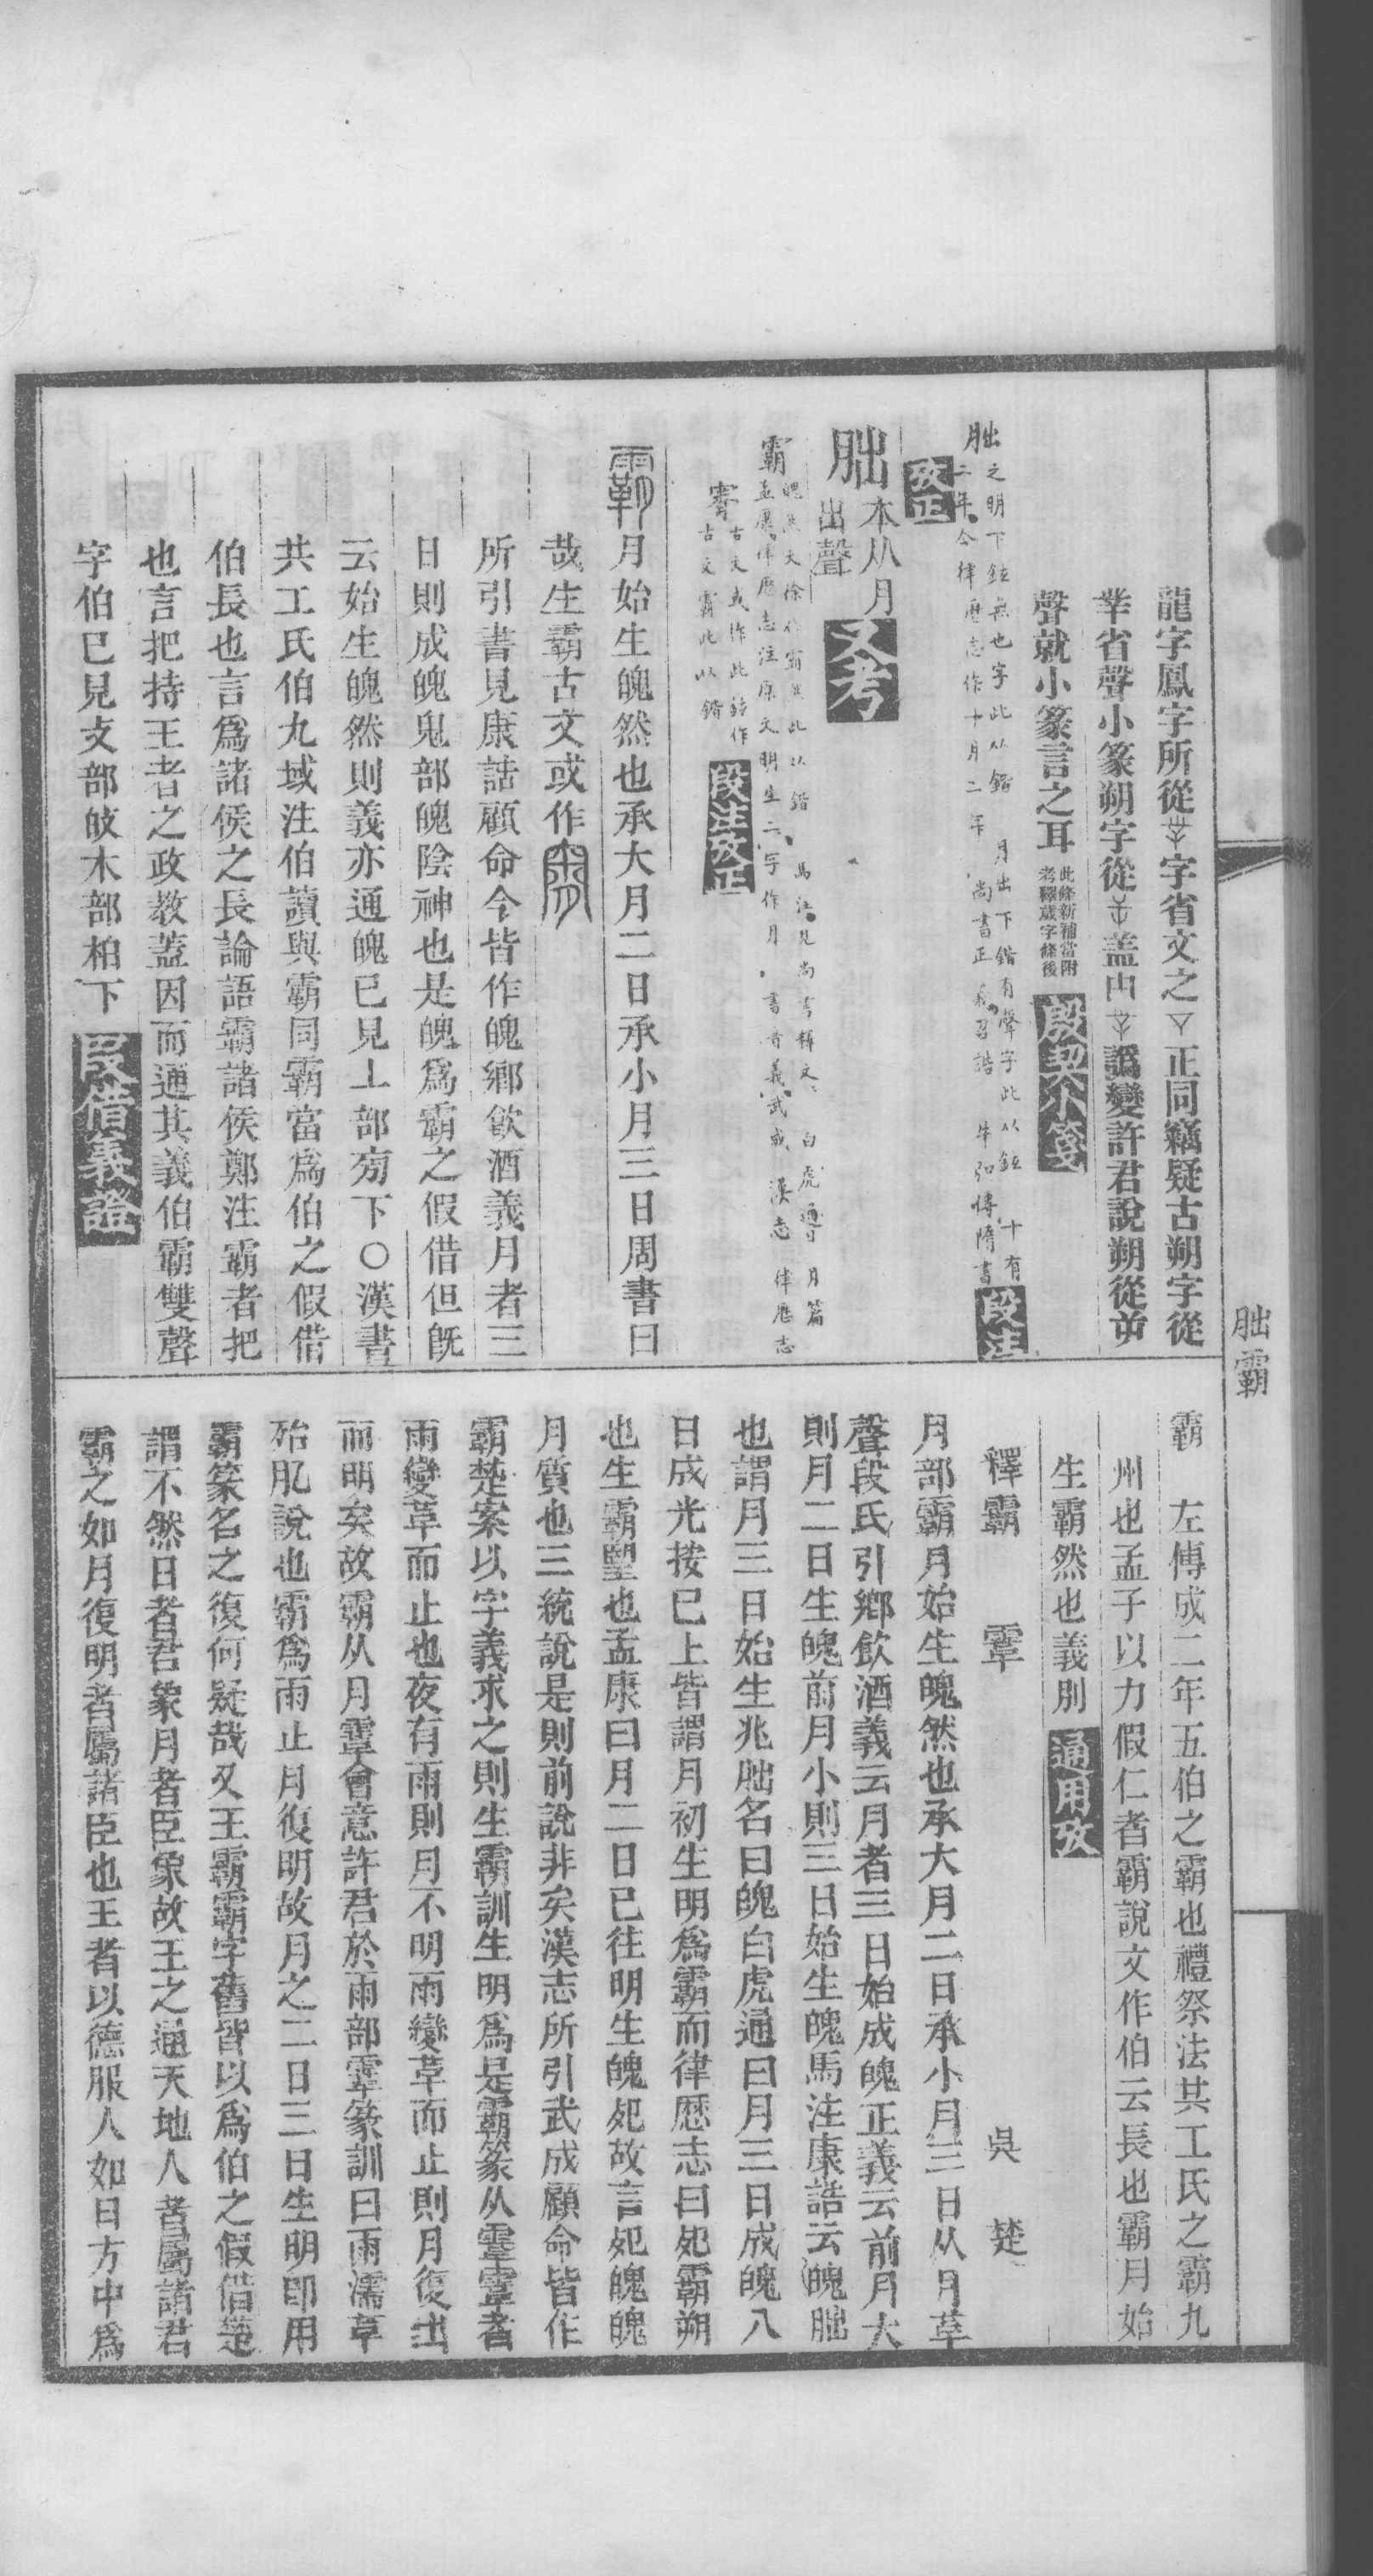 朏霸
龍字鳳字所從字省文之正同竊疑古朔字從
丵省聲小篆朔字從蓋由譌變許君說朔從屰
聲就小篆言之耳 此條新補當附考釋歲字條後 殷契小箋
朏之明下鉉無也字此从鍇 月出下鍇有聲字此从鉉 十有
二年今律歷志作十月二年 尚書正義召誥 牛弘傳隋書 段注
攷正
朏 本从月
出聲 文考
霸
魄然大徐作霸然此从鍇 馬注見尚書釋文 白虎通日月篇
孟康律歷志注原文明生二字作月 書音義武成 漢志律歷志
古文或作此鉉作
古文霸此从鍇 段注攷正
霸月始生魄然也承大月二日承小月三日周書曰
哉生霸古文或作
所引書見康誥顧命今皆作魄鄉飲酒義月者三
日則成魄鬼部魄陰神也是魄爲霸之假借但旣
云始生魄然則義亦通魄已見上部㫄下〇漢書
共工氏伯九域注伯讀與霸同霸當爲伯之假借
伯長也言爲諸侯之長論語霸諸侯鄭注霸者把
也言把持王者之政教蓋因而通其義伯霸雙聲
字伯已見支部攱木部柏下 段借義證
霸 左傳成二年五伯之霸也禮祭法共工氏之霸九
州也孟子以力假仁者霸說文作伯云長也霸月始
生霸然也義別 通用攷
釋霸 䨣 吳 楚
月部霸月始生魄然也承大月二日承小月三日从月䨣
聲段氏引鄉飲酒義云月者三日始成魄正義云前月大
則月二日生魄前月小則三日始生魄馬注康誥云魄朏
也謂月三日始生兆朏名曰魄白虎通曰月三日成魄八
日成光按已上皆謂月初生明爲霸而律歷志曰死霸朔
也生霸望也孟康曰月二日已往明生魄死故言死魄魄
月質也三統說是則前說非矣漢志所引武成顧命皆作
霸楚案以字義求之則生霸訓生明爲是霸篆从䨣䨣者
雨變革而止也夜有雨則月不明雨變革而止則月復出
而明矣故霸从月䨣會意許君於雨部䨣篆訓曰雨濡革
殆肊說也霸爲雨止月復明故月之二日三日生明卽用
霸篆名之復何疑哉又王霸霸字舊皆以爲伯之假借楚
謂不然日者君象月者臣象故王之通天地人者屬諸君
霸之如月復明者屬諸臣也王者以德服人如日方中爲